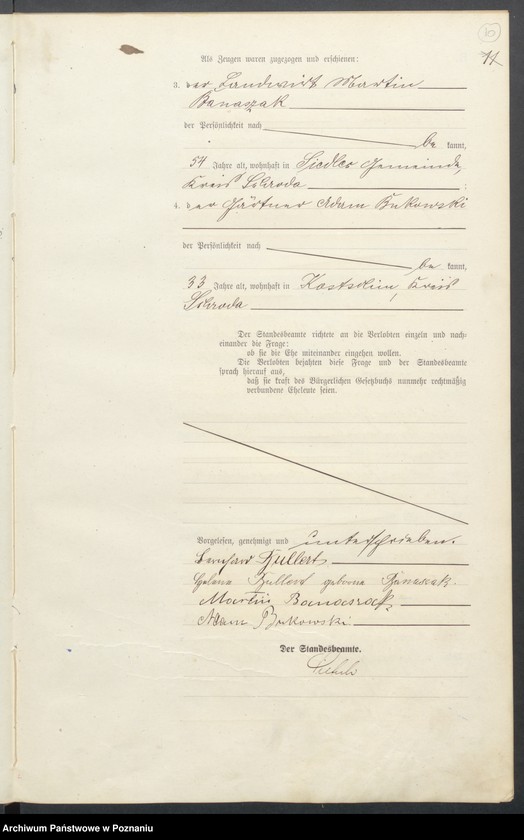 10
11
Als Zeugen waren zugezogen und erschienen:
3. der Landwirt Martin
Banaszak
der Persönlichkeit nach
be kannt,
54 Jahre alt, wohnhaft in Siedlec Gemeinde,
Kreis Schroda ;
4. der Gärtner Adam Bukowski
der Persönlichkeit nach
be kannt,
33 Jahre alt, wohnhaft in Kostschin, Kreis
Schroda
Der Standesbeamte richtete an die Verlobten einzeln und nach-
einander die Frage:
ob sie die Ehe miteinander eingehen wollen.
Die Verlobten bejahten diese Frage und der Standesbeamte
sprach hierauf aus,
daß sie kraft des Bürgerlichen Gesetzbuchs nunmehr rechtmäßig
verbundene Eheleute seien.
Vorgelesen, genehmigt und unterschrieben.
Bernhard
Helena geborene Banaszak.
Martin Banaszak
Adam Bukowski
Der Standesbeamte.
Archiwum Państwowe w Poznaniu